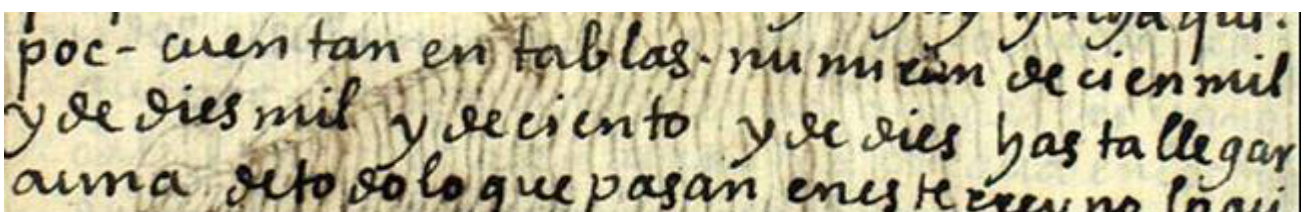 poc - cuentan en tablas. numiran de cien mil
y de dies mil y de ciento y de dies hasta llegar
a una de todo lo que pasan en este rreyno lo